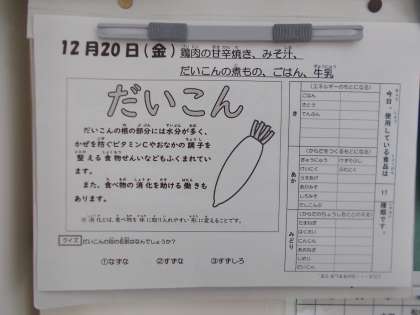 12月20日(金) 鶏肉の甘辛焼き、みそ汁、
だいこんの煮もの、ごはん、牛乳
だいこん
だいこんの根の部分には水分が多く、
かぜを防ぐビタミンCやおなかの調子を
整える食物せんいなどもふくまれてい
ます。
また、食べ物の消化を助ける働きも
あります。
※消化とは、食べ物を体に取り入れやすい形に変えることです。
クイズ だいこんの別の名前はなんでしょうか?
①なずな ②すずな ③すずしろ
今日、使用している食品は
17
種類です。
(エネルギーのもとになる)
き
ごはん
さとう
でんぷん
(からだをつくるもとになる)
あか
ぎゅうにゅう
けいにく
みどり
たまねぎ
はくさい
にんじん
あおねぎ
しめじ
だいこん